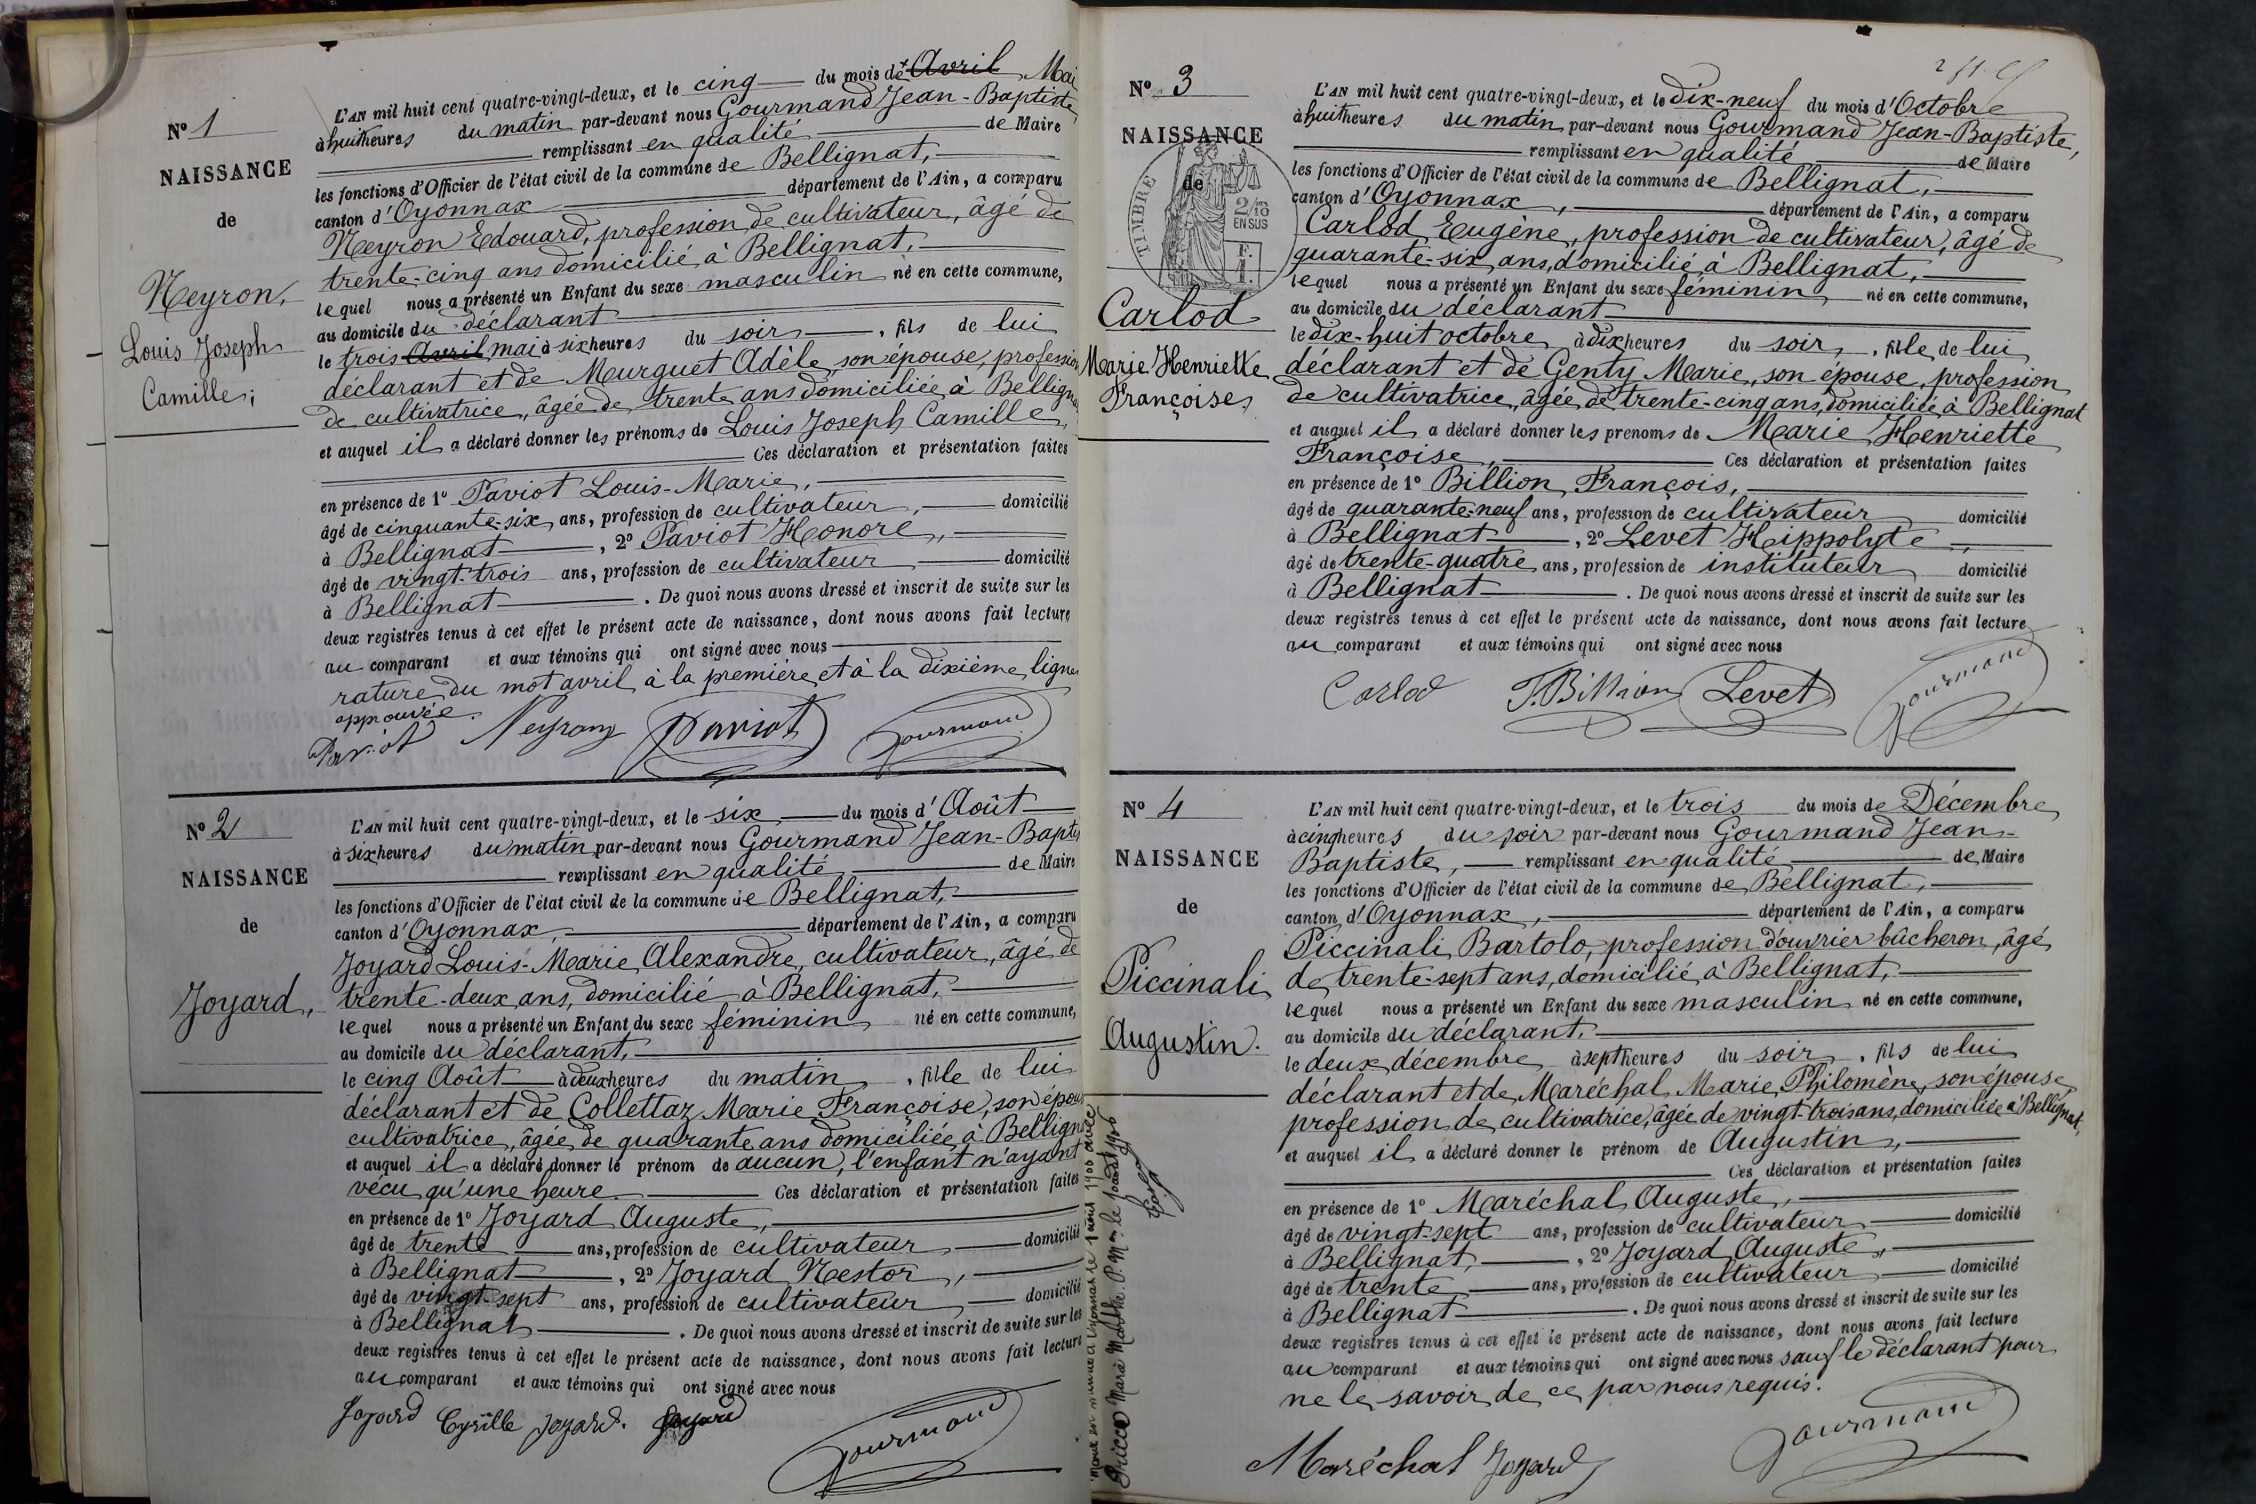 Nº 1
NAISSANCE
de
Neyron,
Louis Joseph
Camille;
L'AN mil huit cent quatre-vingt-deux, et le cinq du mois de Avril Mai
à huit heures du matin par-devant nous Gourmand Jean-Baptiste,
remplissant en qualité de Maire
les fonctions d'Officier de l'état civil de la commune de Bellignat,
canton d'Oyonnax département de l'Ain, a comparu
Neyron Edouard, profession de cultivateur, âgé de
trente-cinq ans domicilié à Bellignat,
lequel nous a présenté un Enfant du sexe masculin né en cette commune,
au domicile du déclarant
le trois Avril mai à six heures du soir, fils de lui
déclarant et de Murguet Adèle, son épouse, profession
de cultivatrice, âgée de trente ans domiciliée à Bellignat
et auquel il a déclaré donner les prénoms de Louis Joseph Camille,
Ces déclaration et présentation faites
en présence de 1º Paviot Louis-Marie,
âgé de cinquante-six ans, profession de cultivateur, domicilié
à Bellignat, 2º Paviot Honoré,
âgé de vingt-trois ans, profession de cultivateur domicilié
à Bellignat. De quoi nous avons dressé et inscrit de suite sur les
deux registres tenus à cet effet le présent acte de naissance, dont nous avons fait lecture
au comparant et aux témoins qui ont signé avec nous
rature du mot avril à la première et à la dixième ligne
approuvée.
Paviot Neyron Paviot Gourmand
Nº 2
NAISSANCE
de
Joyard,
L'AN mil huit cent quatre-vingt-deux, et le six du mois d'Août
à six heures du matin par-devant nous Gourmand Jean-Baptis
remplissant en qualité de Maire
les fonctions d'Officier de l'état civil de la commune de Bellignat,
canton d'Oyonnax, département de l'Ain, a comparu
Joyard Louis-Marie Alexandre, cultivateur, âgé de
trente-deux ans, domicilié à Bellignat,
lequel nous a présenté un Enfant du sexe féminin né en cette commune,
au domicile du déclarant,
le cinq Août à deux heures du matin, fille de lui
déclarant et de Collettaz Marie Françoise, son épouse
cultivatrice, âgée de quarante ans domiciliée à Bellignat
et auquel il a déclaré donner le prénom de aucun, l'enfant n'ayant
vécu qu'une heure. Ces déclaration et présentation faites
en présence de 1º Joyard Auguste,
âgé de trente ans, profession de cultivateur, domicilié
à Bellignat, 2º Joyard Nestor,
âgé de vingt-sept ans, profession de cultivateur domicilié
à Bellignat. De quoi nous avons dressé et inscrit de suite sur les
deux registres tenus à cet effet le présent acte de naissance, dont nous avons fait lecture
au comparant et aux témoins qui ont signé avec nous
Joyard Cyrille Joyard. Joyard Gourmand
Nº 3
NAISSANCE
de
TIMBRE
2/10
EN SUS
Carlod
Marie Henriette
Françoise,
L'AN mil huit cent quatre-vingt-deux, et le dix-neuf du mois d'Octobre
à huit heures du matin par-devant nous Gourmand Jean-Baptiste,
remplissant en qualité de Maire
les fonctions d'Officier de l'état civil de la commune de Bellignat,
canton d'Oyonnax, département de l'Ain, a comparu
Carlod Eugène, profession de cultivateur, âgé de
quarante-six ans, domicilié à Bellignat,
lequel nous a présenté un Enfant du sexe féminin né en cette commune,
au domicile du déclarant
le dix-huit octobre à dix heures du soir, fille de lui
déclarant et de Genty Marie, son épouse, profession
de cultivatrice, âgée de trente-cinq ans, domiciliée à Bellignat
et auquel il a déclaré donner les prenoms de Marie Henriette
Françoise, Ces déclaration et présentation faites
en présence de 1º Billion François,
âgé de quarante-neuf ans, profession de cultivateur domicilié
à Bellignat, 2º Levet Hippolyte,
âgé de trente-quatre ans, profession de instituteur domicilié
à Bellignat. De quoi nous avons dressé et inscrit de suite sur les
deux registres tenus à cet effet le présent acte de naissance, dont nous avons fait lecture
au comparant et aux témoins qui ont signé avec nous
Carlod F. Billion Levet Gourmand
Nº 4
NAISSANCE
de
Piccinali
Augustin.
L'AN mil huit cent quatre-vingt-deux, et le trois du mois de Décembre
à cinq heures du soir par-devant nous Gourmand Jean-
Baptiste, remplissant en qualité de Maire
les fonctions d'Officier de l'état civil de la commune de Bellignat,
canton d'Oyonnax, département de l'Ain, a comparu
Piccinali Bartolo, profession d'ouvrier bûcheron, âgé
de trente-sept ans, domicilié à Bellignat,
lequel nous a présenté un Enfant du sexe masculin né en cette commune,
au domicile du déclarant,
le deux décembre à sept heures du soir, fils de lui
déclarant et de Maréchal Marie Philomène, son épouse
profession de cultivatrice, âgée de vingt-trois ans, domiciliée à Bellignat,
et auquel il a déclaré donner le prénom de Augustin,
Ces déclaration et présentation faites
en présence de 1º Maréchal Auguste,
âgé de vingt-sept ans, profession de cultivateur domicilié
à Bellignat, 2º Joyard Auguste,
âgé de trente ans, profession de cultivateur domicilié
à Bellignat. De quoi nous avons dressé et inscrit de suite sur les
deux registres tenus à cet effet le présent acte de naissance, dont nous avons fait lecture
au comparant et aux témoins qui ont signé avec nous sauf le déclarant pour
ne le savoir de ce par nous requis.
Maréchal Joyard Gourmand